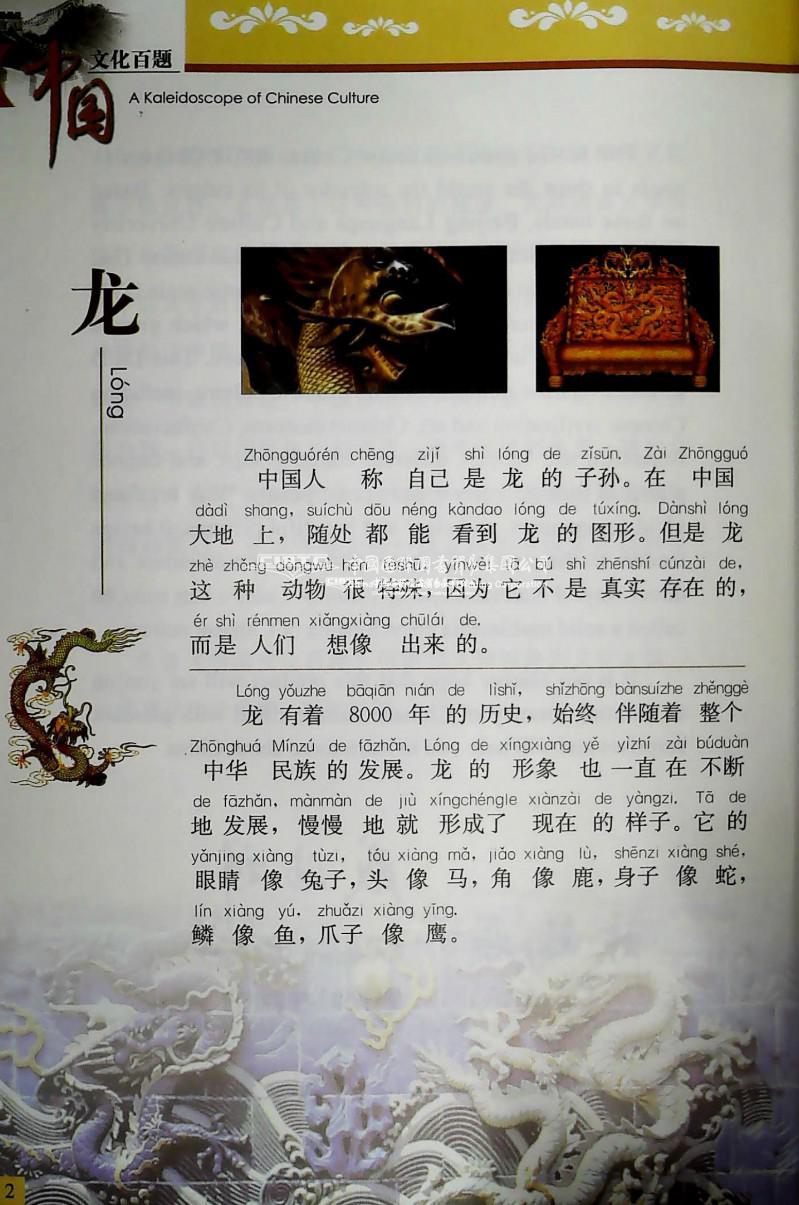 文化百题
中国
A Kaleidoscope of Chinese Culture
龙
Lóng
Zhōngguórén chēng zìjǐ shì lóng de zǐsūn. Zài Zhōngguó
中国人 称 自己 是 龙 的 子孙。在 中国
dàdì shang, suíchù dōu néng kàndao lóng de túxíng. Dànshì lóng
大地 上，随处 都 能 看到 龙 的 图形。但是 龙
zhè zhǒng dòngwù hěn tèshū, yīnwèi tā bú shì zhēnshí cúnzài de,
这 种 动物 很 特殊，因为 它 不 是 真实 存在 的，
ér shì rénmen xiǎngxiàng chūlái de.
而是 人们 想像 出来 的。
Lóng yǒuzhe bāqiān nián de lìshǐ, shǐzhōng bànsuízhe zhěnggè
龙 有着 8000 年 的 历史，始终 伴随着 整个
Zhōnghuá Mínzú de fāzhǎn. Lóng de xíngxiàng yě yìzhí zài búduàn
中华 民族 的 发展。龙 的 形象 也 一直 在 不断
de fāzhǎn, mànmàn de jiù xíngchéngle xiànzài de yàngzi. Tā de
地 发展，慢慢 地 就 形成了 现在 的 样子。它 的
yǎnjing xiàng tùzi, tóu xiàng mǎ, jiǎo xiàng lù, shēnzi xiàng shé,
眼睛 像 兔子，头 像 马，角 像 鹿，身子 像 蛇，
lín xiàng yú, zhuǎzi xiàng yīng.
鳞 像 鱼，爪子 像 鹰。
2